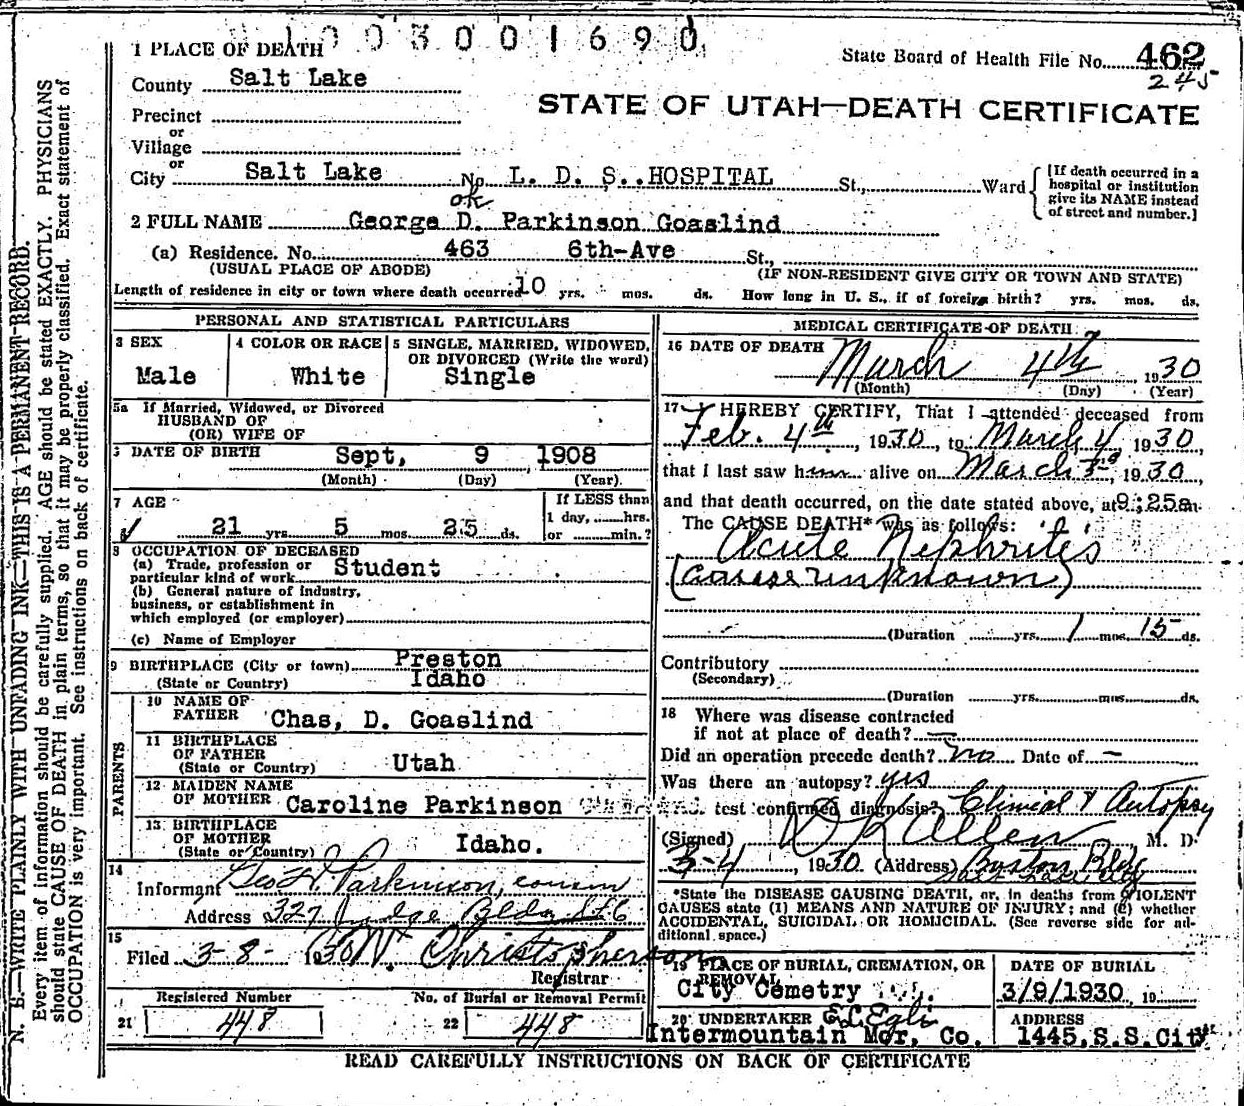 1003001690
1 PLACE OF DEATH
State Board of Health File No. 462
245
County Salt Lake
STATE OF UTAH—DEATH CERTIFICATE
Precinct
or
Village
or
City Salt Lake No. L. D. S. HOSPITAL St., Ward
[If death occurred in a
hospital or institution
give its NAME instead
of street and number.]
ok
2 FULL NAME George D. Parkinson Goaslind
(a) Residence. No. 463 6th-Ave St.,
(USUAL PLACE OF ABODE) (IF NON-RESIDENT GIVE CITY OR TOWN AND STATE)
Length of residence in city or town where death occurred 10 yrs. mos. ds. How long in U. S., if of foreign birth? yrs. mos. ds.
PERSONAL AND STATISTICAL PARTICULARS
3 SEX
Male
4 COLOR OR RACE
White
5 SINGLE, MARRIED, WIDOWED,
OR DIVORCED (Write the word)
Single
5a If Married, Widowed, or Divorced
HUSBAND OF
(OR) WIFE OF
6 DATE OF BIRTH Sept, 9 1908
(Month) (Day) (Year)
7 AGE
21 yrs 5 mos 25 ds.
If LESS than
1 day, ......hrs.
or ......min.?
8 OCCUPATION OF DECEASED
(a) Trade, profession or
particular kind of work Student
(b) General nature of industry,
business, or establishment in
which employed (or employer)
(c) Name of Employer
9 BIRTHPLACE (City or town) Preston
(State or Country) Idaho
PARENTS
10 NAME OF
FATHER Chas, D. Goaslind
11 BIRTHPLACE
OF FATHER
(State or Country) Utah
12 MAIDEN NAME
OF MOTHER Caroline Parkinson
13 BIRTHPLACE
OF MOTHER
(State or Country) Idaho.
14
Informant Parkinson, cousin
Address 327 Judge Bldg
15
Filed 3-8- 1930 W. Christopherson
Registrar
Registered Number
21 448
No. of Burial or Removal Permit
22 448
MEDICAL CERTIFICATE OF DEATH
16 DATE OF DEATH March 4th 1930
(Month) (Day) (Year)
17 I HEREBY CERTIFY, That I attended deceased from
Feb. 4th, 1930, to March 4, 1930,
that I last saw him alive on March 3rd, 1930,
and that death occurred, on the date stated above, at 9:25am.
The CAUSE DEATH* was as follows:
Acute Nephritis
(cause unknown)
(Duration yrs. 1 mos 15 ds.
Contributory
(Secondary)
(Duration yrs. mos. ds.
18 Where was disease contracted
if not at place of death? —
Did an operation precede death? no Date of —
Was there an autopsy? yes
test confirmed diagnosis? Clinical & Autopsy
(Signed) D K Allen M. D.
3-4, 1930 (Address) Boston Bldg
*State the DISEASE CAUSING DEATH, or, in deaths from VIOLENT
CAUSES state (1) MEANS AND NATURE OF INJURY; and (2) whether
ACCIDENTAL, SUICIDAL OR HOMICIDAL. (See reverse side for ad-
ditional space.)
19 PLACE OF BURIAL, CREMATION, OR
REMOVAL
City Cemetry
DATE OF BURIAL
3/9/1930, 19
20 UNDERTAKER E L Egli
Intermountain Mor, Co.
ADDRESS
1445,S.S.City
READ CAREFULLY INSTRUCTIONS ON BACK OF CERTIFICATE
N. B.—WRITE PLAINLY WITH UNFADING INK—THIS IS A PERMANENT RECORD.
Every item of information should be carefully supplied. AGE should be stated EXACTLY. PHYSICIANS
should state CAUSE OF DEATH in plain terms, so that it may be properly classified. Exact statement of
OCCUPATION is very important. See instructions on back of certificate.